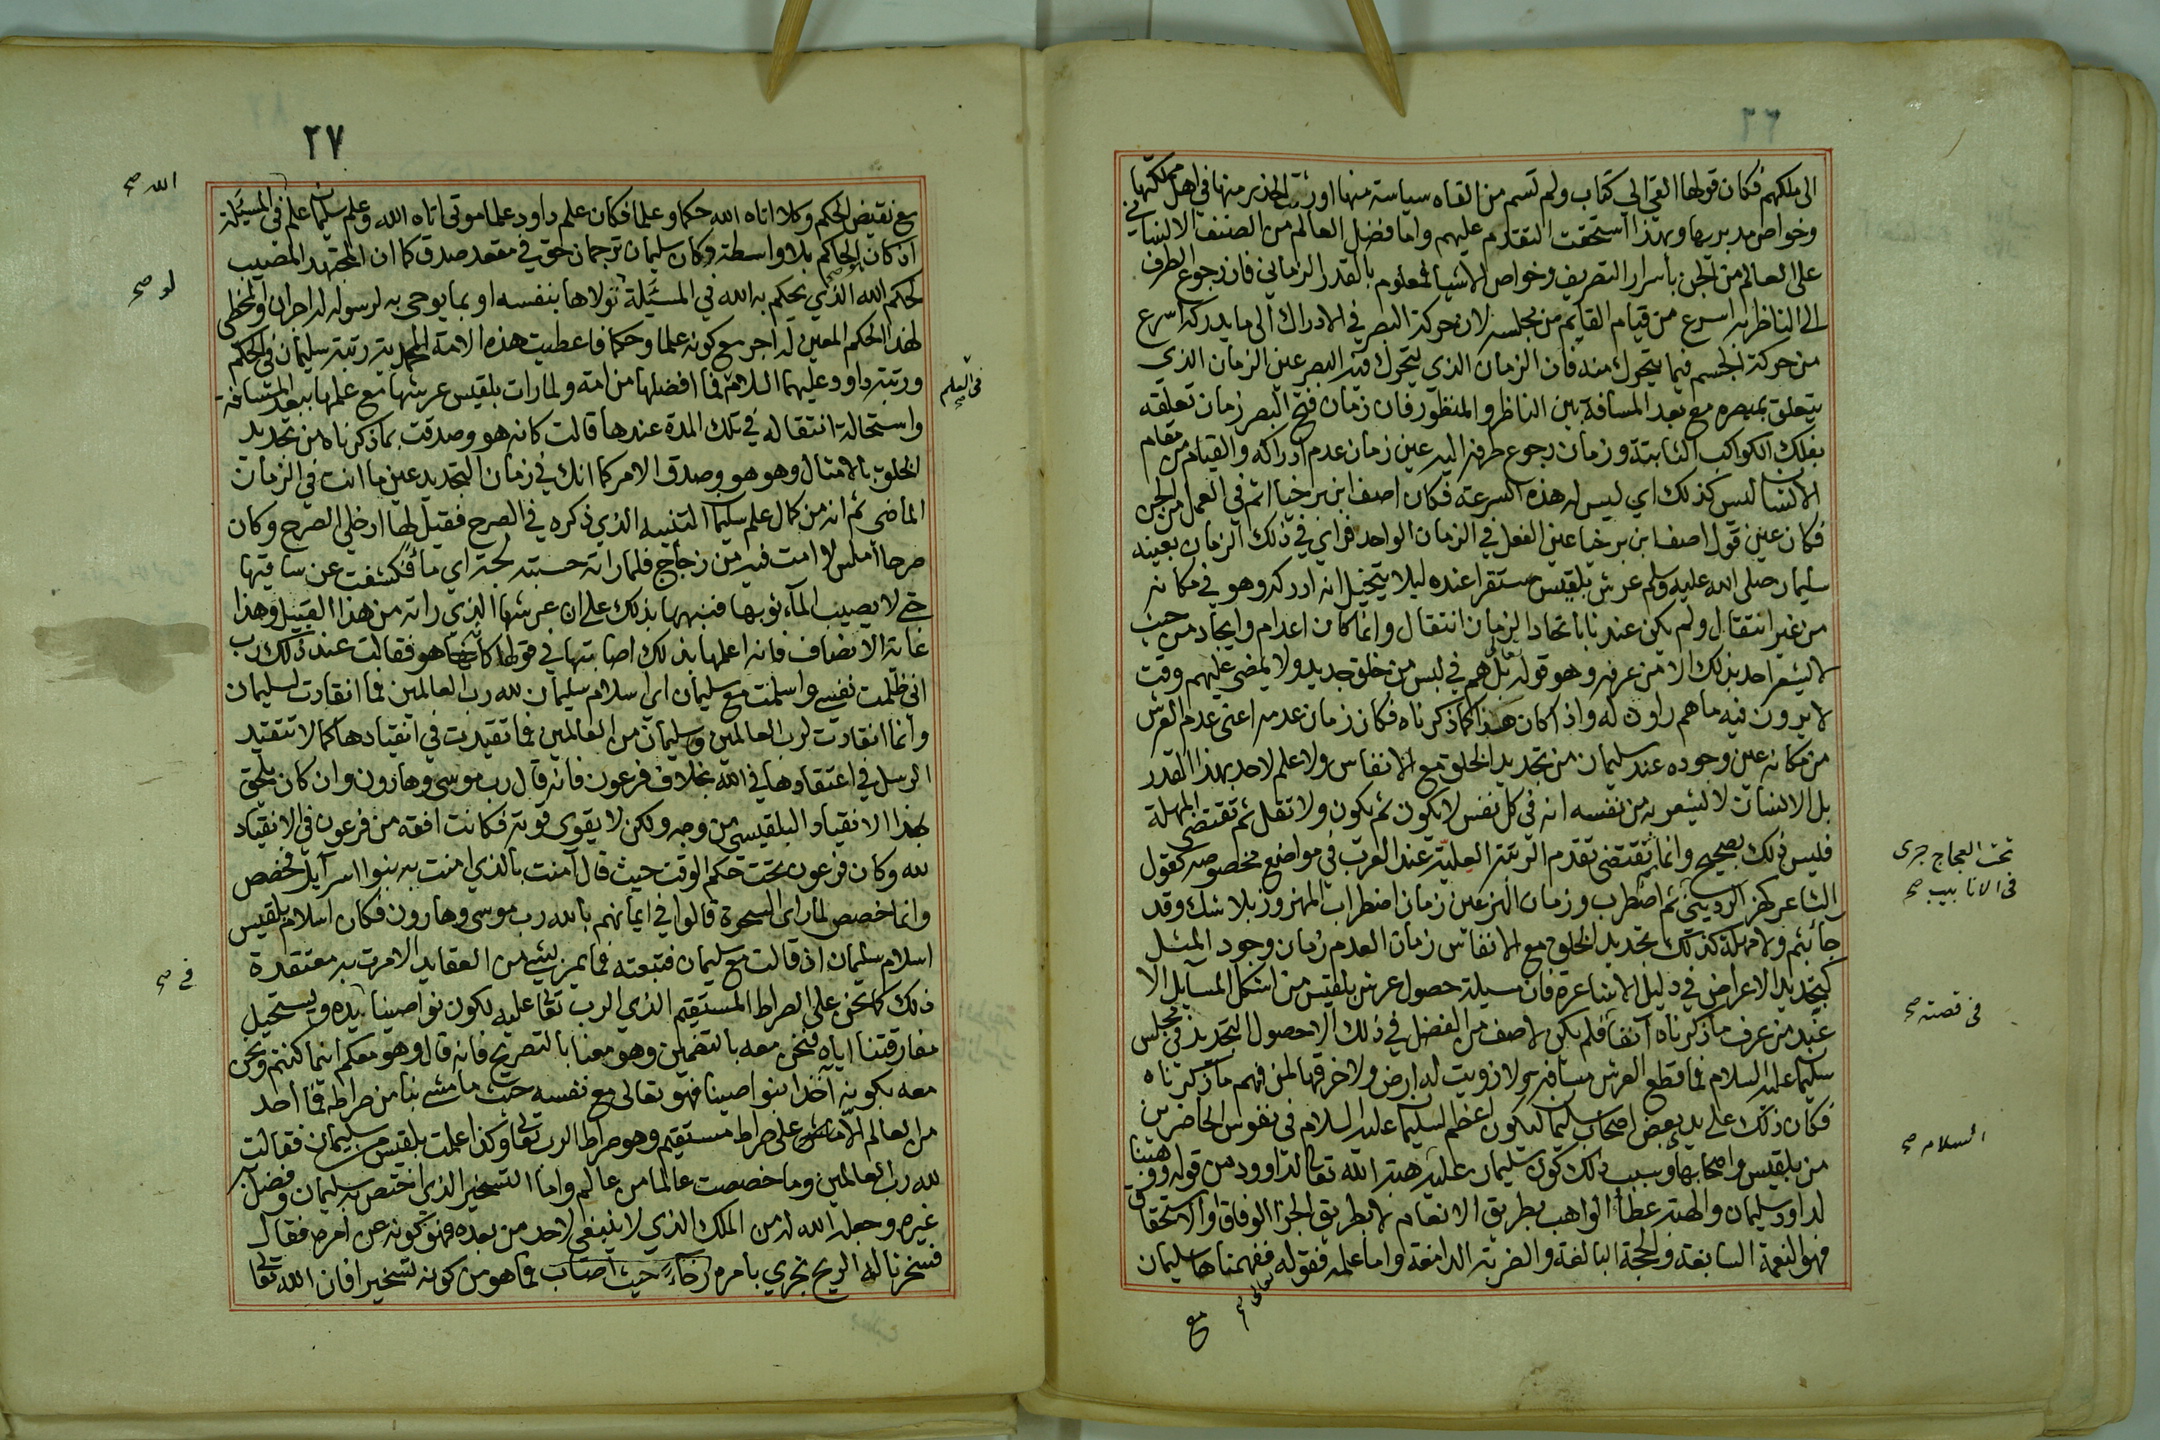 الى ملكهم فكان قولها القي الي كتاب ولم تسم من القاه سياسة منها اورثت الحذر منها في اهل مملكتها
وخواص مدبريها وبهذا استحقت التقدم عليهم واما فضل العالم من الصنف الانساني
على العالم من الجن باسرار التصريف وخواص الاشيا فمعلوم بالقدر الزماني فان رجوع الطرف
الى الناظر به اسرع من قيام القايم من مجلسه لان حركة البصر في الادراك الى ما يدركه اسرع
من حركة الجسم فيما يتحرك منه فان الزمان الذي يتحرك فيه البصر عين الزمان الذي
يتعلق بمبصره مع بعد المسافة بين الناظر والمنظور فان زمان فتح البصر زمان تعلقه
بفلك الكواكب الثابتة وزمان رجوع طرفه اليه عين زمان عدم ادراكه والقيام من مقام
الانسان ليس كذلك اي ليس له هذه السرعة فكان اصف ابن برخيا اتم في العمل من الجن
فكان عين قول اصف بن برخيا عين الفعل في الزمان الواحد فراي في ذلك الزمان بعينه
سليمان صلى الله عليه وسلم عرش بلقيس مستقرا عنده ليلا يتخيل انه ادركه وهو في مكانه
من غير انتقال ولم يكن عندنا باتحاد الزمان انتقال وانما كان اعدام وايجاد من حيث
لا يشعر احد بذلك الا من عرفه وهو قوله تعالى بل هم في لبس من خلق جديد ولا يمضي عليهم وقت
لا يرون فيه ما هم راون له واذا كان هذا كما ذكرناه فكان زمان عدمه اعني عدم العرش
من مكانه عين وجوده عند سليمان من تجديد الخلق مع الانفاس ولا علم لاحد بهذا القدر
بل الانسان لا يشعر به من نفسه انه في كل نفس لا يكون ثم يكون ولا تقل ثم تقتضي المهلة
فليس ذلك بصحيح وانما ثم تقتضي تقدم الرتبة العلية عند العرب في مواضع مخصوصه كقول
الشاعر كهز الرديني ثم اضطرب وزمان الهز عين زمان اضطراب المهزوز بلا شك وقد
جا بثم ولا مهلة كذلك تجديد الخلق مع الانفاس زمان العدم زمان وجود المثل
كتجديد الاعراض في دليل الاشاعرة فان مسيلة حصول عرش بلقيس من اشكل المسايل الا
عند من عرف ما ذكرناه انفا فلم يكن لاصف من الفضل في ذلك الا حصول التجديد في مجلس
سليمان عليه السلام فما قطع العرش مسافة ولا زويت له ارض ولا خرقها لمن فهم ما ذكرناه
فكان ذلك على يد بعض اصحاب سليمان ليكون اعظم لسليمان عليه السلام في نفوس الحاضرين
من بلقيس واصحابها وسبب ذلك كون سليمان عليه هبة الله تعالى لداوود من قوله ووهبنا
لداود سليمان والهبة عطا الواهب بطريق الانعام لا بطريق الجزا الوفاق او الاستحقاق
فهو النعمة السابغة والحجة البالغة والضربة الدامغة واما علمه فقوله تعالى ففهمناها سليمان
مع
تحت العجاج جرى
في الانابيب صح
في قصته صح
السلام صح
٢٧
مع نقيض الحكم وكلا اتاه الله حكما وعلما فكان علم داود علما موتى اتاه الله وعلم سليمان علم في المسئلة
اذ كان الحاكم بلا واسطة وكان سليمان ترجمان حق في مقعد صدق كما ان المجتهد المصيب
لحكم الله الذي يحكم به الله في المسئلة تولاها بنفسه او بما يوحى به لرسوله له اجران والمخطي
لهذا الحكم المعين له اجر مع كونه علما وحكما فاعطيت هذه الامة المحمدية رتبة سليمان في الحكم
ورتبة داوود عليهما السلام فما افضلها من امة ولما رات بلقيس عرشها مع علمها ببعد المسافة
واستحالة انتقاله في تلك المدة عندها قالت كانه هو وصدقت بما ذكرناه من تجديد
الخلق بالامثال وهو هو وصدق الامر كما انك في زمان التجديد عين ما انت في الزمان
الماضي ثم انه من كمال علم سليمان التنبيه الذي ذكره في الصرح فقيل لها ادخلي الصرح وكان
صرحا املس لا امت فيه من زجاج فلما راته حسبته لجة اي ما فكشفت عن ساقيها
حتى لا يصيب الماء ثوبها فنبهها بذلك على ان عرشها الذي راته من هذا القبيل وهذا
غاية الانصاف فانه اعلمها بذلك اصابتها في قولها كانه هو فقالت عند ذلك رب
اني ظلمت نفسي واسلمت مع سليمان اي اسلام سليمان لله رب العالمين فما انقادت لسليمان
وانما انقادت لرب العالمين وسليمان من العالمين فما تقيدت في انقيادها كما لا تتقيد
الرسل في اعتقادها في الله بخلاف فرعون فانه قال رب موسى وهارون وان كان يلحق
بهذا الانقياد البلقيسي من وجه ولكن لا يقوى قوته فكانت افقه من فرعون في الانقياد
لله وكان فرعون تحت حكم الوقت حيث قال امنت بالذي امنت به بنوا اسرآيل فخصص
وانما خصص لما راى السحرة قالوا في ايمانهم بالله رب موسى وهارون فكان اسلام بلقيس
اسلام سليمان اذ قالت مع سليمان فتبعته فما يمر بشي من العقايد الا مرت به معتقدة
ذلك كما نحن على الصراط المستقيم الذي الرب تعالى عليه لكون نواصينا بيده ويستحيل
مفارقتنا اياه فنحن معه بالتضمين وهو معنا بالتصريح فانه قال وهو معكم اينما كنتم ونحن
معه بكونه آخذا بنواصينا فهو تعالى مع نفسه حيث ما مشى بنا من صراطه فما احد
من العالم الا على صراط مستقيم وهو صراط الرب تعالى وكذا علمت بلقيس من سليمان فقالت
لله رب العالمين وما خصصت عالما من عالم واما التسخير الذي اختص به سليمان وفضل به
غيره وجعله الله له من الملك الذي لا ينبغي لاحد من بعده فهو كونه عن امره فقال
فسخرنا له الريح تجري بامره رخاء حيث اصاب فما هو من كونه تسخيرا فان الله تعالى
الله صح
له صح
في العلم صح
في صح